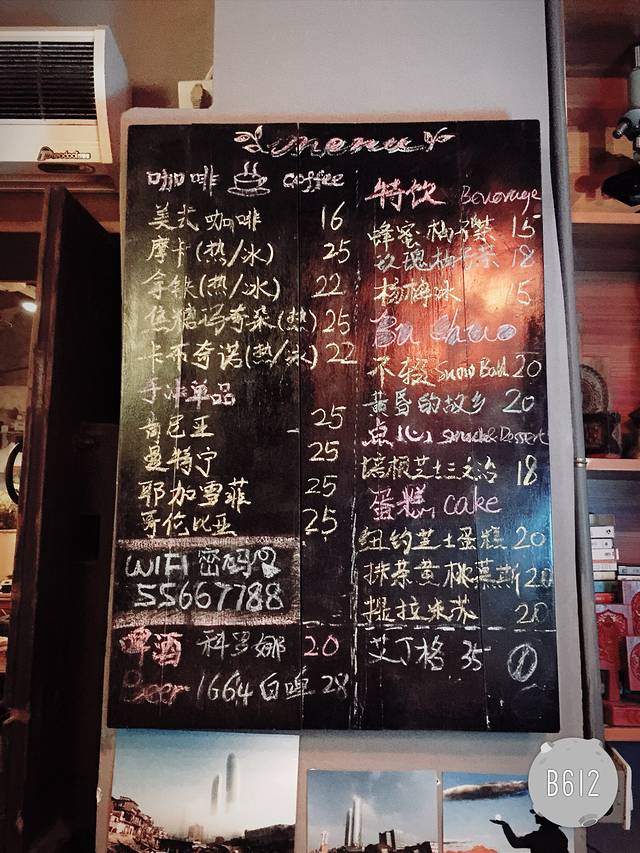 menu
咖啡 coffee
美式咖啡 16
摩卡(热/冰) 25
拿铁(热/冰) 22
焦糖玛奇朵(热) 25
卡布奇诺(热/冰) 22
手冲单品
肯尼亚 25
曼特宁 25
耶加雪菲 25
哥伦比亚 25
WIFI 密码
55667788
啤酒 科罗娜 20
Beer 1664白啤 28
特饮 Beverage
蜂蜜柚子茶 15
玫瑰柚子茶 18
杨梅冰 15
Bu Shuo
不说 Snow Ball 20
黄昏的故乡 20
点心 Snack&Dessert
培根芝士三文治 18
蛋糕 Cake
纽约芝士蛋糕 20
抹茶黄桃慕斯 20
提拉米苏 20
艾丁格 35
B612